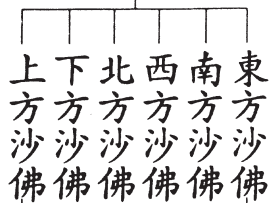 東方沙佛
南方沙佛
西方沙佛
北方沙佛
下方沙佛
上方沙佛